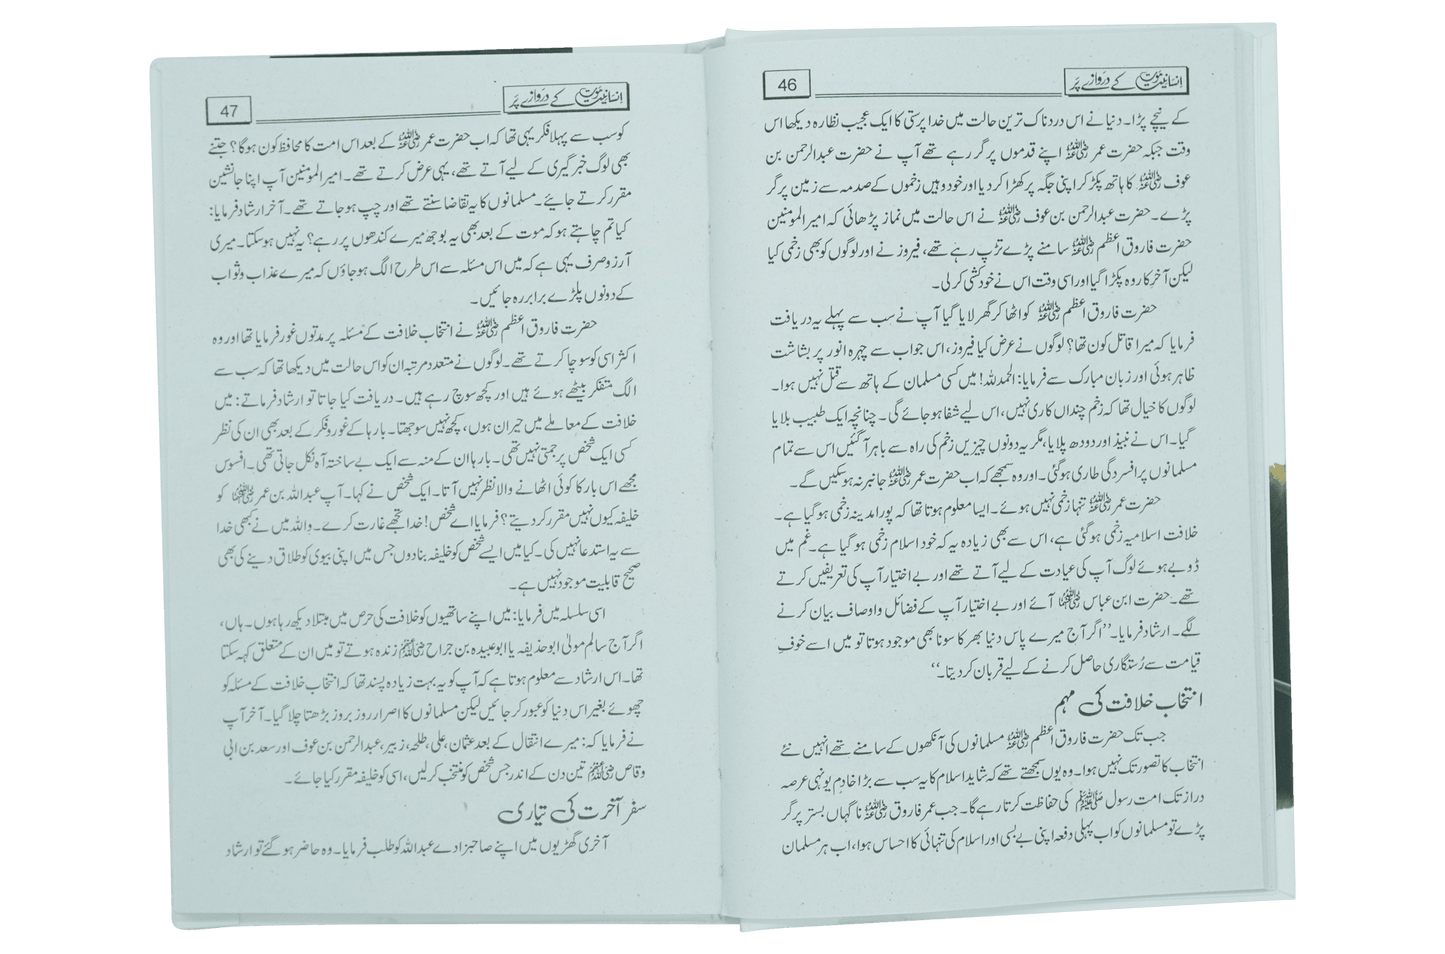 انسانیت موت کے دروازے پر
46
کے نیچے پڑا۔ دنیا نے اس دردناک ترین حالت میں خدا پرستی کا ایک عجیب نظارہ دیکھا اس
وقت جبکہ حضرت عمر رضی اللہ عنہ اپنے قدموں پر گر رہے تھے آپ نے حضرت عبدالرحمن بن
عوف رضی اللہ عنہ کا ہاتھ پکڑ کر اپنی جگہ پر کھڑا کر دیا اور خود وہیں زخموں کے صدمہ سے زمین پر گر
پڑے۔ حضرت عبدالرحمن بن عوف رضی اللہ عنہ نے اس حالت میں نماز پڑھائی کہ امیر المومنین
حضرت فاروق اعظم رضی اللہ عنہ سامنے پڑے تڑپ رہے تھے، فیروز نے اور لوگوں کو بھی زخمی کیا
لیکن آخر کار وہ پکڑا گیا اور اسی وقت اس نے خودکشی کر لی۔
حضرت فاروق اعظم رضی اللہ عنہ کو اٹھا کر گھر لایا گیا آپ نے سب سے پہلے یہ دریافت
فرمایا کہ میرا قاتل کون تھا؟ لوگوں نے عرض کیا فیروز، اس جواب سے چہرہ انور پر بشاشت
ظاہر ہوئی اور زبان مبارک سے فرمایا: الحمد للہ! میں کسی مسلمان کے ہاتھ سے قتل نہیں ہوا۔
لوگوں کا خیال تھا کہ زخم چنداں کاری نہیں، اس لیے شفا ہو جائے گی۔ چنانچہ ایک طبیب بلایا
گیا۔ اس نے نبیذ اور دودھ پلایا، مگر یہ دونوں چیزیں زخم کی راہ سے باہر آ گئیں اس سے تمام
مسلمانوں پر افسردگی طاری ہو گئی۔ اور وہ سمجھے کہ اب حضرت عمر رضی اللہ عنہ جانبر نہ ہو سکیں گے۔
حضرت عمر رضی اللہ عنہ تنہا زخمی نہیں ہوئے۔ ایسا معلوم ہوتا تھا کہ پورا مدینہ زخمی ہو گیا ہے۔
خلافت اسلامیہ زخمی ہو گئی ہے، اس سے بھی زیادہ یہ کہ خود اسلام زخمی ہو گیا ہے۔ غم میں
ڈوبے ہوئے لوگ آپ کی عیادت کے لیے آتے تھے اور بے اختیار آپ کی تعریفیں کرتے
تھے۔ حضرت ابن عباس رضی اللہ عنہما آئے اور بے اختیار آپ کے فضائل و اوصاف بیان کرنے
لگے۔ ارشاد فرمایا۔ ’’اگر آج میرے پاس دنیا بھر کا سونا بھی موجود ہوتا تو میں اسے خوفِ
قیامت سے رُستگاری حاصل کرنے کے لیے قربان کر دیتا۔‘‘
انتخاب خلافت کی مہم
جب تک حضرت فاروق اعظم رضی اللہ عنہ مسلمانوں کی آنکھوں کے سامنے تھے انہیں نئے
انتخاب کا تصور تک نہیں ہوا۔ وہ یوں سمجھتے تھے کہ شاید اسلام کا یہ سب سے بڑا خادم یونہی عرصہ
دراز تک امت رسول ﷺ کی حفاظت کرتا رہے گا۔ جب عمر فاروق رضی اللہ عنہ ناگہاں بستر پر گر
پڑے تو مسلمانوں کو اب پہلی دفعہ اپنی بے بسی اور اسلام کی تنہائی کا احساس ہوا، اب ہر مسلمان
انسانیت موت کے دروازے پر
47
کو سب سے پہلا فکر یہی تھا کہ اب حضرت عمر رضی اللہ عنہ کے بعد اس امت کا محافظ کون ہوگا؟ جتنے
بھی لوگ خبر گیری کے لیے آتے تھے، یہی عرض کرتے تھے۔ امیر المومنین آپ اپنا جانشین
مقرر کرتے جائیے۔ مسلمانوں کا یہ تقاضا سنتے تھے اور چپ ہو جاتے تھے۔ آخر ارشاد فرمایا:
کیا تم چاہتے ہو کہ موت کے بعد بھی یہ بوجھ میرے کندھوں پر رہے؟ یہ نہیں ہو سکتا۔ میری
آرزو صرف یہی ہے کہ میں اس مسئلہ سے اس طرح الگ ہو جاؤں کہ میرے عذاب و ثواب
کے دونوں پلڑے برابر رہ جائیں۔
حضرت فاروق اعظم رضی اللہ عنہ نے انتخاب خلافت کے مسئلہ پر مدتوں غور فرمایا تھا اور وہ
اکثر اسی کو سوچا کرتے تھے۔ لوگوں نے متعدد مرتبہ ان کو اس حالت میں دیکھا تھا کہ سب سے
الگ متفکر بیٹھے ہوئے ہیں اور کچھ سوچ رہے ہیں۔ دریافت کیا جاتا تو ارشاد فرماتے: میں
خلافت کے معاملے میں حیران ہوں، کچھ نہیں سوجھتا۔ بارہا کے غور و فکر کے بعد بھی ان کی نظر
کسی ایک شخص پر جمتی نہیں تھی۔ بارہا ان کے منہ سے ایک بے ساختہ آہ نکل جاتی تھی۔ افسوس
مجھے اس بار کا کوئی اٹھانے والا نظر نہیں آتا۔ ایک شخص نے کہا۔ آپ عبداللہ بن عمر رضی اللہ عنہما کو
خلیفہ کیوں نہیں مقرر کر دیتے؟ فرمایا اے شخص! خدا تجھے غارت کرے۔ واللہ میں نے کبھی خدا
سے یہ استدعا نہیں کی۔ کیا میں ایسے شخص کو خلیفہ بنا دوں جس میں اپنی بیوی کو طلاق دینے کی بھی
صحیح قابلیت موجود نہیں ہے۔
اسی سلسلہ میں فرمایا: میں اپنے ساتھیوں کو خلافت کی حرص میں مبتلا دیکھ رہا ہوں۔ ہاں،
اگر آج سالم مولیٰ ابو حذیفہ یا ابو عبیدہ بن جراح زندہ ہوتے تو میں ان کے متعلق کہہ سکتا
تھا۔ اس ارشاد سے معلوم ہوتا ہے کہ آپ کو یہ بہت زیادہ پسند تھا کہ انتخاب خلافت کے مسئلہ کو
چھوئے بغیر اس دنیا کو عبور کر جائیں لیکن مسلمانوں کا اصرار روز بروز بڑھتا چلا گیا۔ آخر آپ
نے فرمایا کہ: میرے انتقال کے بعد عثمان، علی، طلحہ، زبیر، عبدالرحمن بن عوف اور سعد بن ابی
وقاص تین دن کے اندر جس شخص کو منتخب کر لیں، اسی کو خلیفہ مقرر کیا جائے۔
سفر آخرت کی تیاری
آخری گھڑیوں میں اپنے صاحبزادے عبداللہ کو طلب فرمایا۔ وہ حاضر ہو گئے تو ارشاد